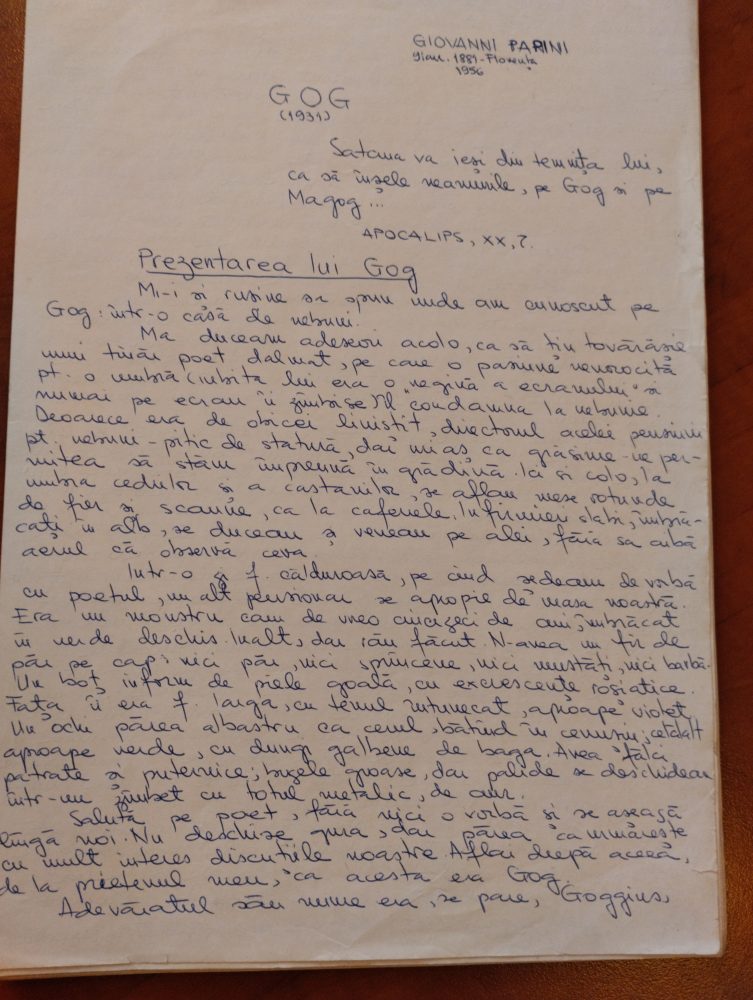 GIOVANNI PAPINI
9 ian. 1881 - Florența
1956
GOG
(1931)
Satana va ieși din temnița lui,
ca să înșele neamurile, pe Gog și pe
Magog...
APOCALIPS, XX, 7.
Prezentarea lui Gog
Mi-i și rușine să spun unde am cunoscut pe
Gog: într-o casă de nebuni.
Mă duceam adeseori acolo, ca să țin tovărășie
unui tînăr poet dalmat, pe care o pasiune nenorocită
pt. o umbră (iubita lui era o "regină a ecranului" și
numai pe ecran îi zîmbise) îl condamna la nebunie.
Deoarece era de obicei liniștit, directorul acelei pensiuni
pt. nebuni - pitic de statură, dar mi as ca grăsime - ne per-
mitea să stăm împreună în grădină. Ici și colo, la
umbra cedrilor și a castanilor, se aflau mese rotunde
de fier și scaune, ca la cafenele. Infirmieri slabi, îmbră-
cați în alb, se duceau și veneau pe alei, fără sa aibă
aerul că observă ceva.
Într-o zi f. călduroasă, pe cînd ședeam de vorbă
cu poetul, un alt pensionar se apropie de masa noastră.
Era un monstru cam de vreo cincizeci de ani, îmbrăcat
în verde deschis. Inalt, dar rău făcut. N-avea un fir de
păr pe cap: nici păr, nici sprîncene, nici mustăți, nici barbă.
Un boț inform de piele goală, cu excrescențe roșiatice.
Fața îi era f. largă, cu tenul întunecat, aproape violet.
Un ochi părea albastru ca cerul, bătînd în cenușiu; celălalt
aproape verde, cu dungi galbene de baga. Avea fălci
patrate și puternice; buzele groase, dar palide se deschideau
într-un zîmbet cu totul metalic, de aur.
Salută pe poet, fără nici o vorbă și se așează
lîngă noi. Nu deschise gura, dar părea că urmărește
cu mult interes discuțiile noastre. Aflai după aceea,
de la prietenul meu, că acesta era Gog.
Adevăratul său nume era, se pare, Goggins,